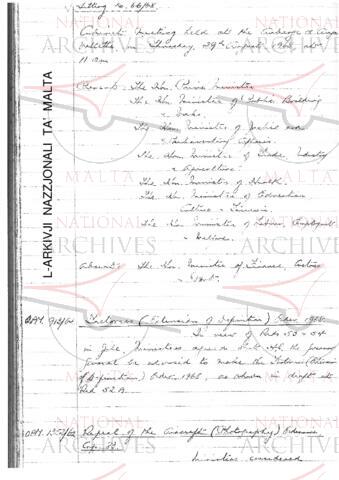 Sitting No. 66/68.
Cabinet Meeting held at the Auberge d'Aragon
Valletta on Thursday, 29th August, 1968, at
11 a.m.
Present: - The Hon. Prime Minister
The Hon. Minister of Public Building
& Works.
The Hon. Minister of Justice and
Parliamentary Affairs.
The Hon. Minister of Trade, Industry
& Agriculture.
The Hon. Minister of Health.
The Hon. Minister of Education
Culture & Tourism.
The Hon. Minister of Labour, Employment
& Welfare.
Absent: The Hon. Minister of Finance, Customs
& Port.
O.P.M. Factories (Extension of Definition) Order, 1968.
In view of Reds 53 & 54
in file, Ministers agreed that the
be advised to make the Factories (Extension
of Definition) Order, 1968, as shown in draft at
Red 52A.
O.P.M. Repeal of the Aircraft (Photography) Ordinance
Cap.
Ministers considered
L-ARKIVJI NAZZJONALI TA' MALTA
NATIONAL
ARCHIVES
MALTA